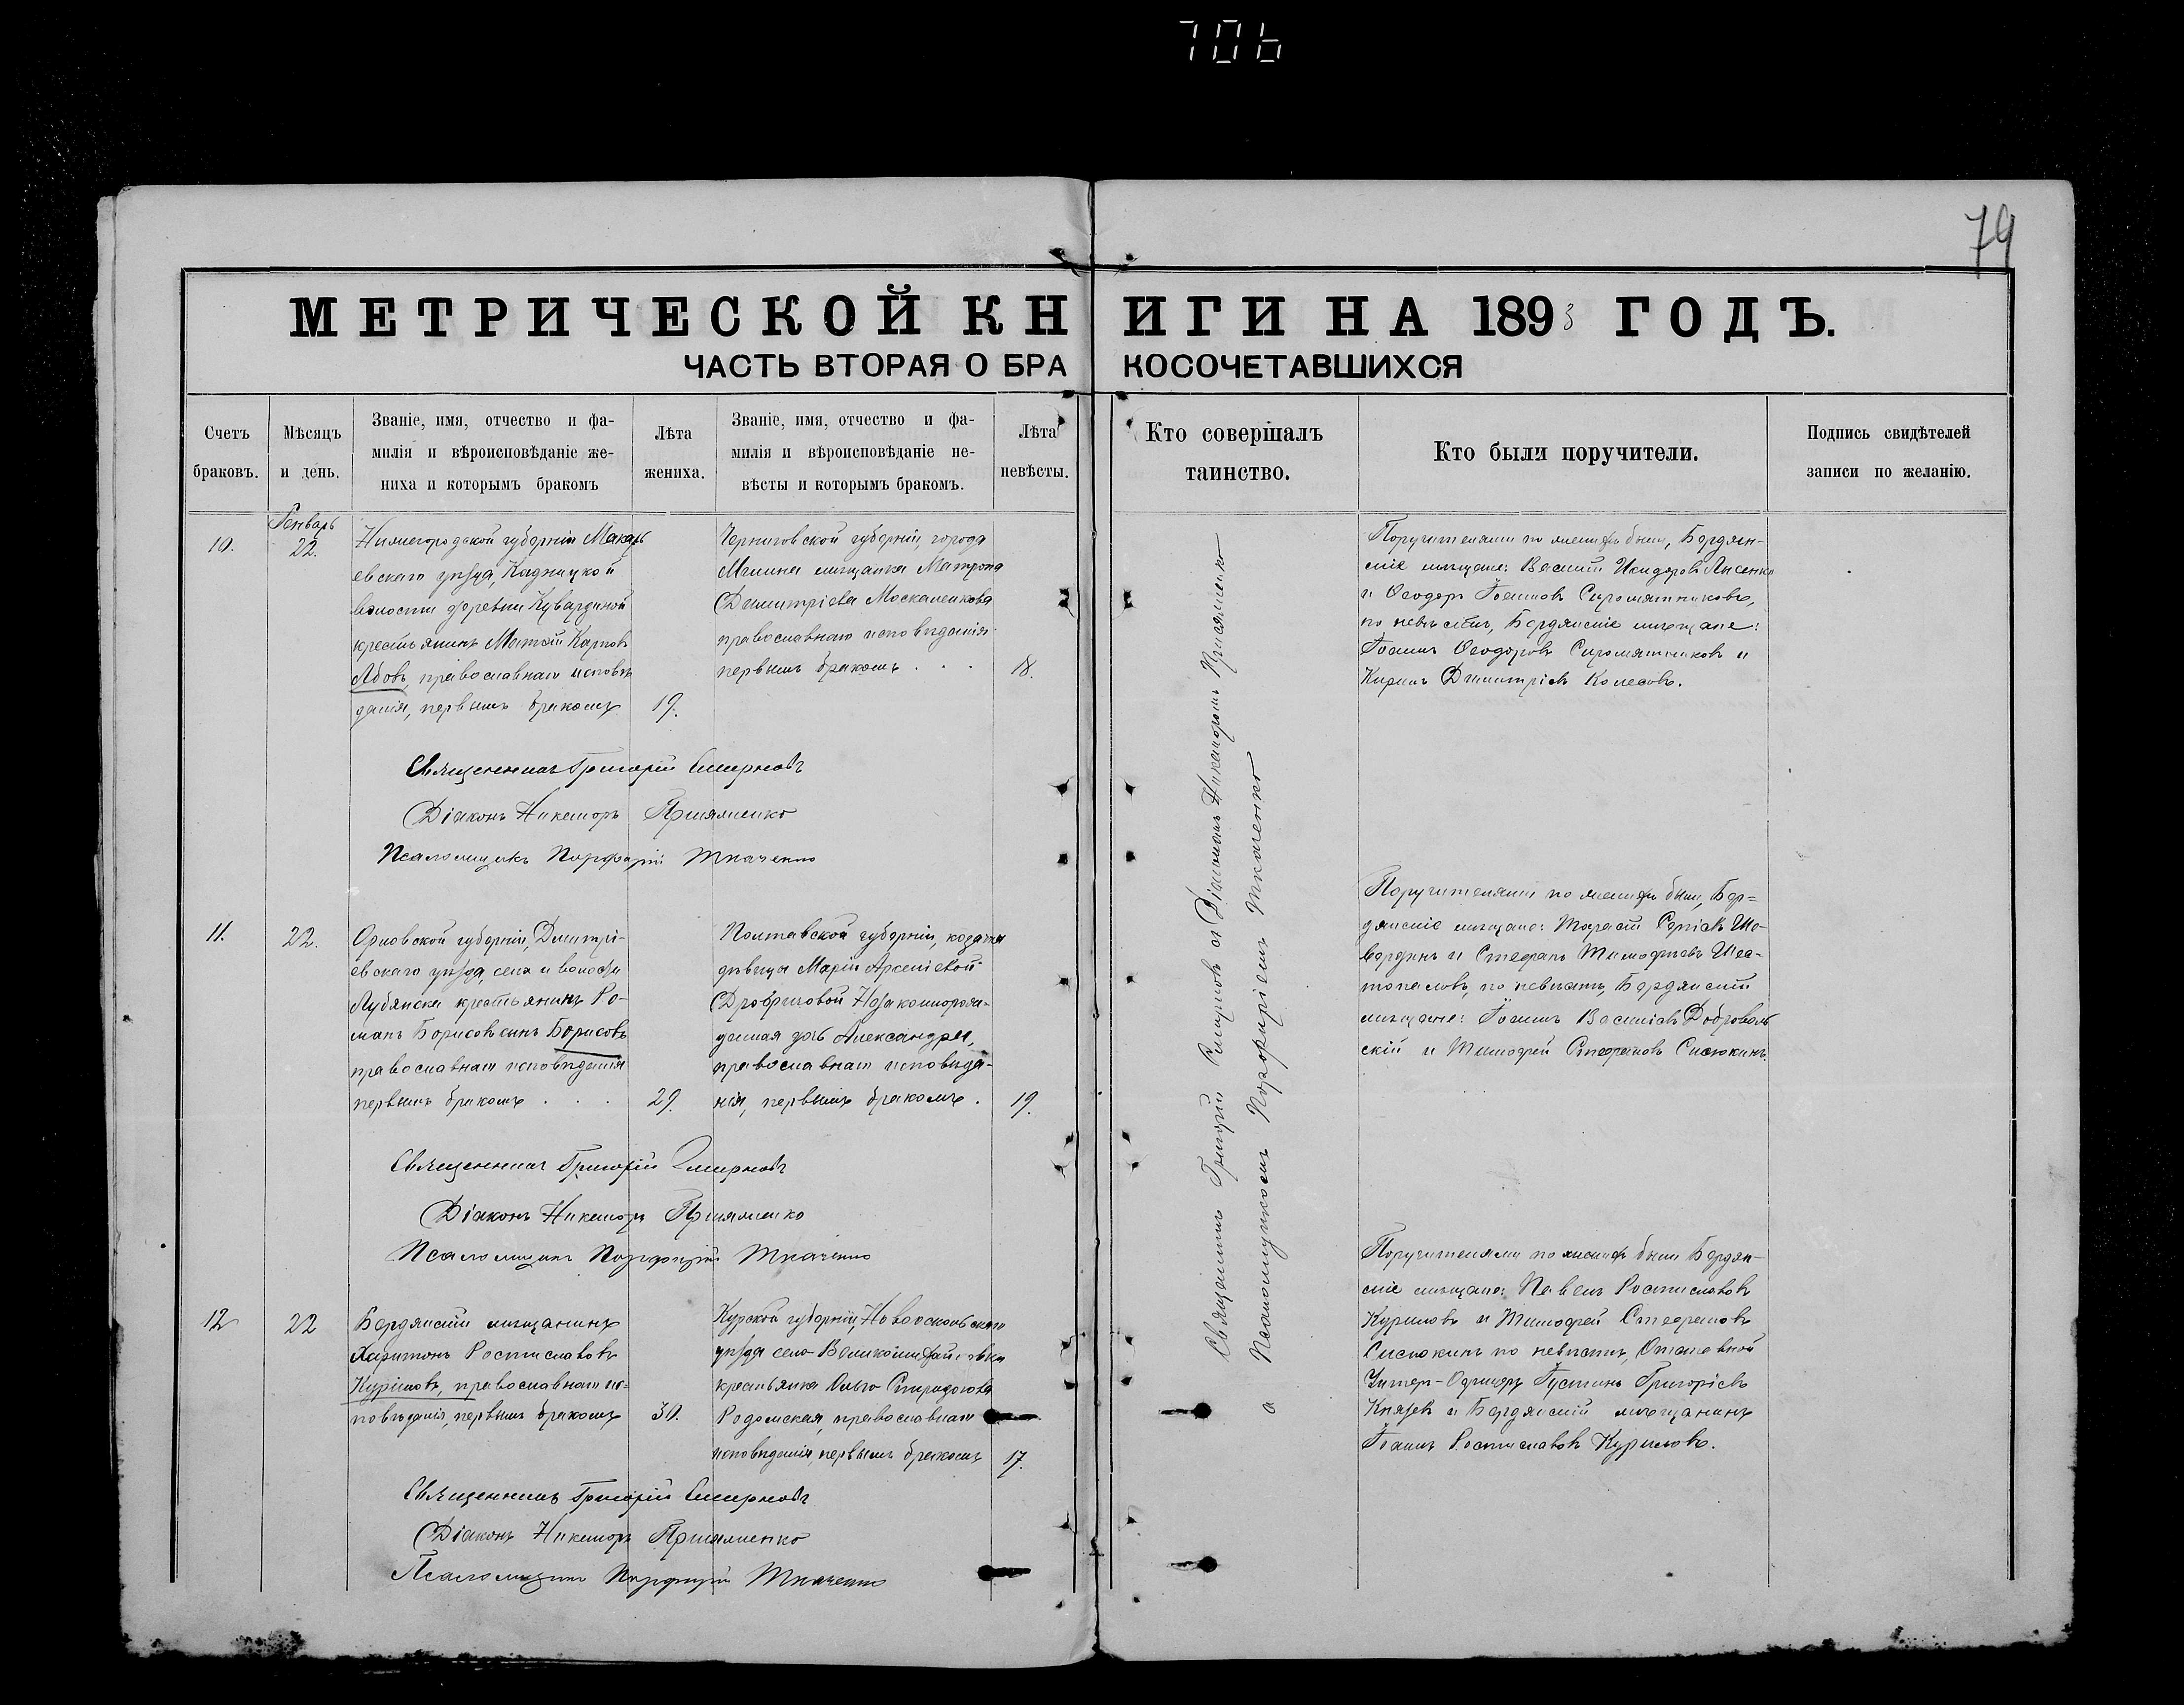 706
79
МЕТРИЧЕСКОЙ КНИГИ НА 1893 ГОДЪ.
ЧАСТЬ ВТОРАЯ О БРАКОСОЧЕТАВШИХСЯ
Счетъ браковъ.
Мѣсяцъ и день.
Званіе, имя, отчество и фа-
милія и вѣроисповѣданіе же-
ниха и которымъ бракомъ
Лѣта жениха.
Званіе, имя, отчество и фа-
милія и вѣроисповѣданіе не-
вѣсты и которымъ бракомъ.
Лѣта невѣсты.
Кто совершалъ таинство.
Кто были поручители.
Подпись свидѣтелей
записи по желанію.
Генварь
10.
22.
Нижегородской губерніи Макарь
евскаго уѣзда, Кадницкой
волости деревни Кувардиной
крестьянинъ Матѳій Карповъ
Абовъ, православнаго исповѣ
данія, первымъ бракомъ
19.
Черниговской губерніи, города
Мглина мѣщанка Матрона
Димитріева Москаленкова
православнаго исповѣданія
первымъ бракомъ . . .
18.
Поручителями по женихѣ были, Бердян-
скіе мѣщане: Василій Исидоровъ Лисенко
и Ѳеодоръ Іоанновъ Сыромятниковъ,
по невѣстѣ, Бердянскіе мѣщане:
Іоаннъ Ѳеодоровъ Сыромятниковъ и
Кирилъ Димитріевъ Колесовъ.
Священникъ Григорій Смирновъ
Діаконъ Никаноръ Прияменко
Псаломщикъ Порфирій Ткаченко
11.
22.
Орловской губерніи, Дмитрі-
евскаго уѣзда, села и волости
Лубянска крестьянинъ Ро-
манъ Борисовъ Борисовъ
православнаго исповѣданія
первымъ бракомъ . . .
29.
Полтавской губерніи, козачки
дѣвицы Маріи Арсеніевой
незаконнорож-
денная дочь Александра,
православнаго исповѣда-
нія, первымъ бракомъ .
19.
Поручителями по женихѣ были, Бер=
дянскіе мѣщане: Тарасій Сергіевъ Ше-
вердинъ и Стефанъ Тимофѣевъ Шес-
топаловъ, по невѣстѣ, Бердянскіи
мѣщане: Іоаннъ Василіевъ Доброволь
скій и Тимофей Стефановъ Сисюкинъ.
Священникъ Григорій Смирновъ
Діаконъ Никаноръ Прияменко
Псаломщикъ Порфирій Ткаченко
12
22
Бердянскій мѣщанинъ
Харитонъ Ростиславовъ
Куриловъ, православнаго ис=
повѣданія, первымъ бракомъ
30.
Курской губерніи, Новооскольскаго
уѣзда села Великомихайловки
крестьянка Ольга Спиридонова
Родомская, православнаго
исповѣданія, первымъ бракомъ
17.
Поручителями по женихѣ были Бердян-
скіе мѣщане: Павелъ Ростиславовъ
Куриловъ и Тимофей Стефановъ
Сисюкинъ по невѣстѣ, Отставной
Унтер-Офицеръ Іустинъ Григорьевъ
Князевъ и Бердянскій мѣщанинъ
Іоаннъ Ростиславовъ Куриловъ.
Священникъ Григорій Смирновъ
Діаконъ Никаноръ Прияменко
Псаломщикъ Порфирій Ткаченко
Священникъ Григорій Смирновъ съ Діакономъ Никаноромъ Прияменко
и Псаломщикомъ Порфиріемъ Ткаченко